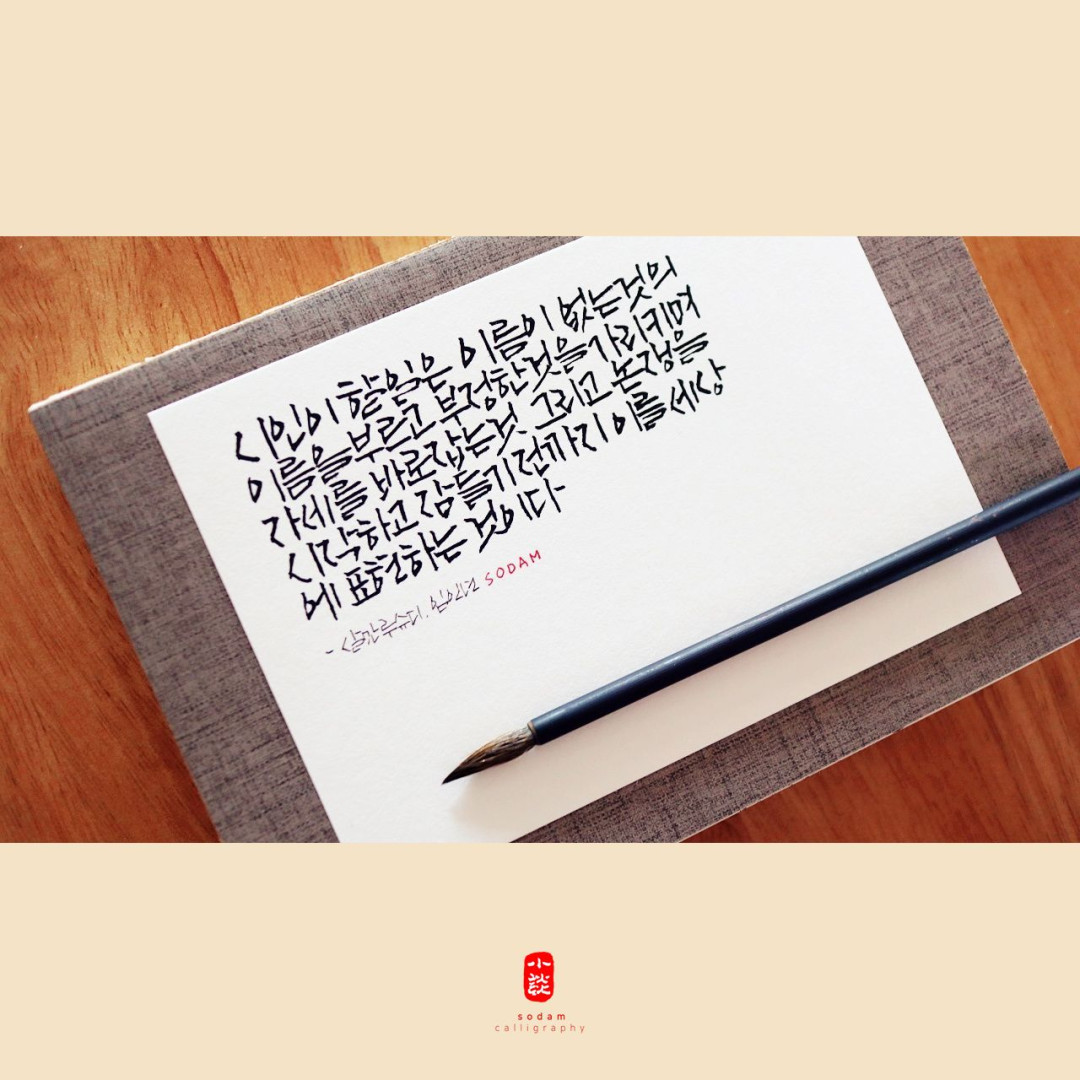 시인이 할 일은 이름이 없는것의
이름을 부르고 부정한것을 가리키며
자세를 바로잡는것. 그리고 논쟁을
시작하고 잠들기 전까지 이를 세상
에 표현하는 것이다
- 살만 루슈디. SODAM
小談
sodam
calligraphy